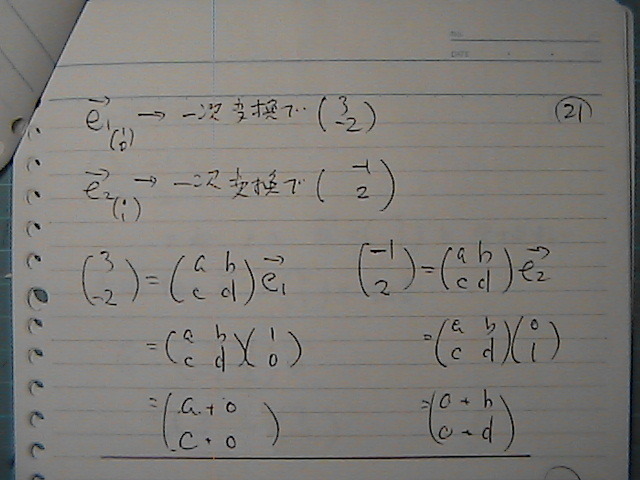 NO.
DATE
e₁→ (1 0) → 一次変換で (3 -2) (21)
e₂→ (1 1) → 一次変換で (-1 2)
(3 -2) = (a b c d) e₁→ (-1 2) = (a b c d) e₂→
= (a b c d)(1 0) = (a b c d)(0 1)
= (a + 0 c + 0) = (0 + b 0 + d)